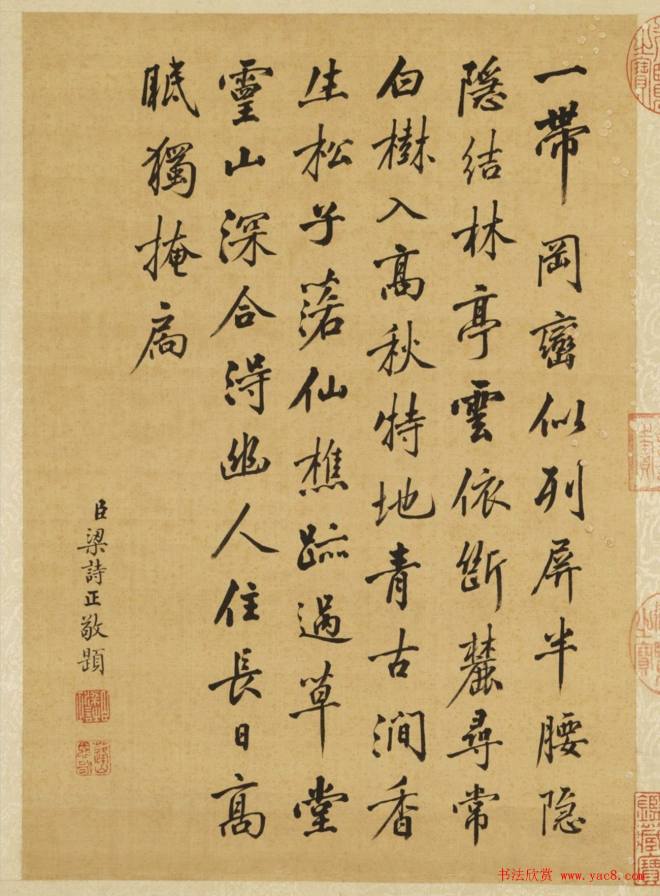 一帶岡巒似列屏半腰隐
隱結林亭雲依斷麓尋常
白樹入髙秋特地青古澗香
生松子落仙樵跡過草堂
靈山深合得幽人住長日髙
眠獨掩扃
臣梁詩正敬題
书法欣赏 www.yac8.com